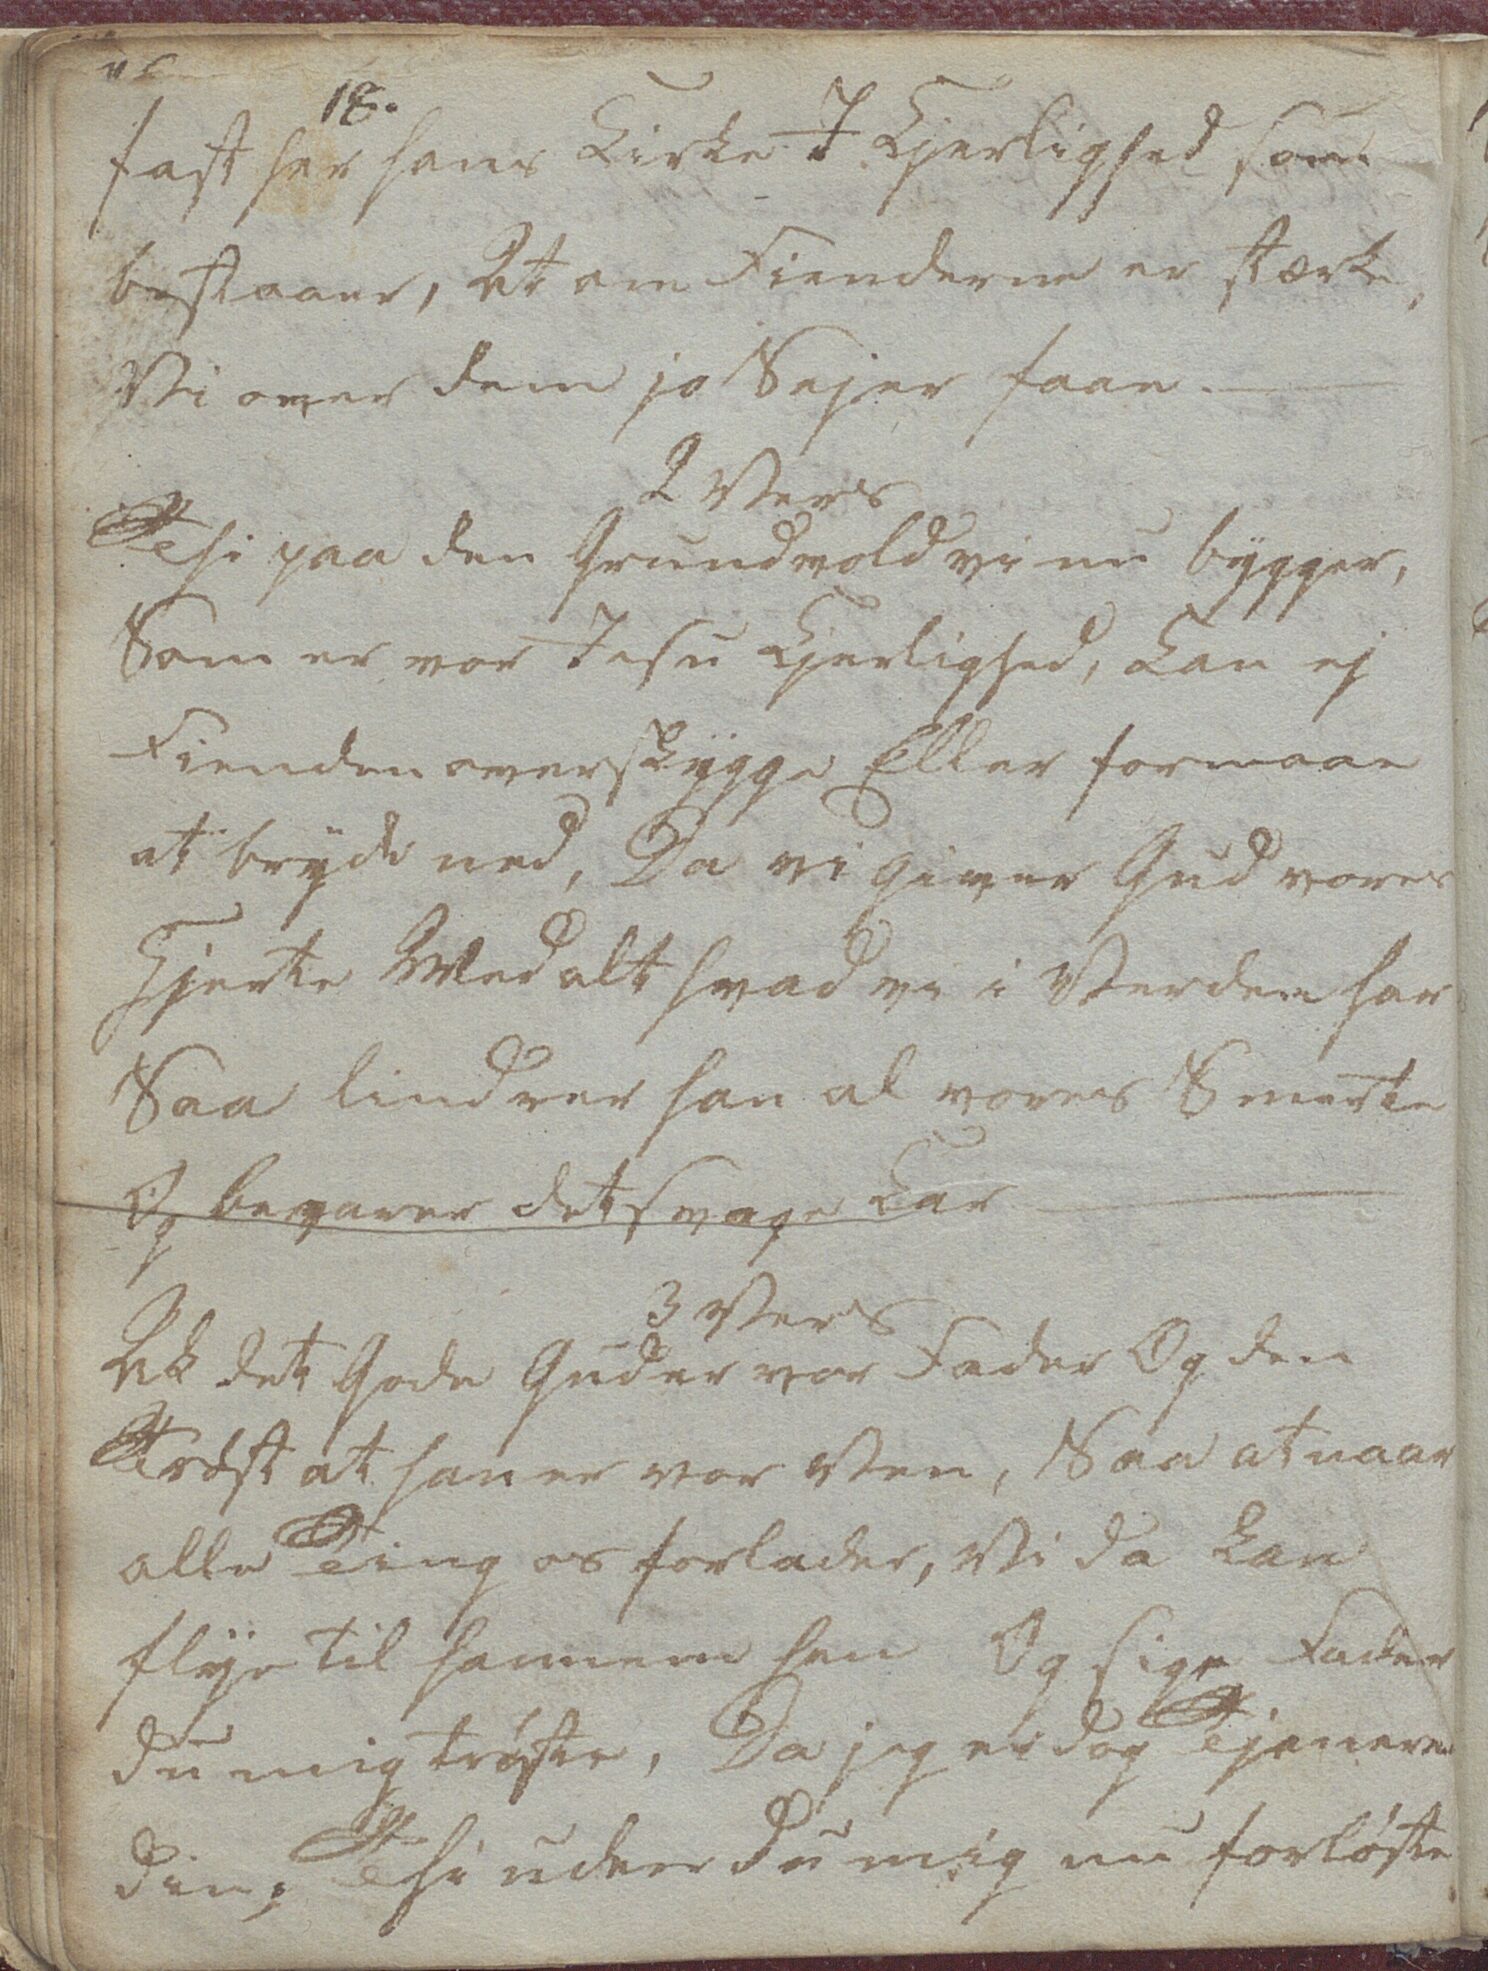 18.
fast her hans Kirke I Kjerlighed som
bestaaer, At om Fienderne er stærke,
Vi over dem jo Sejer faae.
2 Vers
Thi paa den Grundvold vi nu bygger,
Som er vor Jesu Kjerlighed, Kan ej
Fienden overskÿgge Eller formaae
at brÿde ned, Da vi giver Gud vores
Hjerte Med alt hvad vi i Verden har
Saa lindrer han al vores Smerte
Og bevarer det svage Kar
3 Vers
Ak det Gode Gud er vor Fader Og den
Trøst at han er vor Ven, Saa at naar
alle Ting os forlader, Vi da kan
flÿe til hannem hen Og sige Fader
du mig trøste, Da jeg er dog Tjenere
din, Thi uden du mig nu forløste